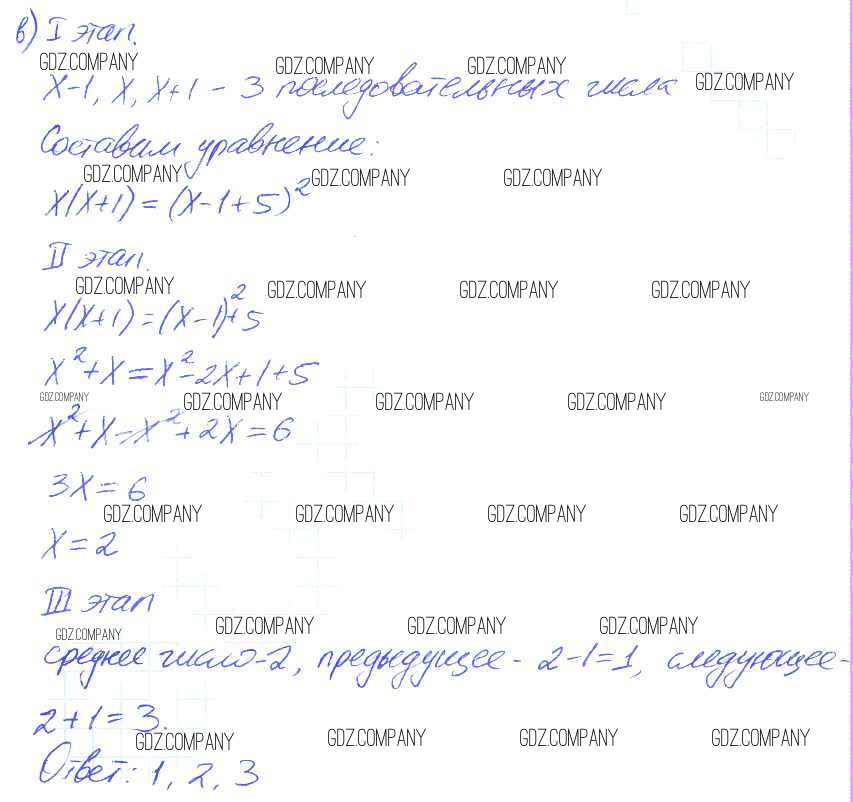 в) I этап.
GDZ.COMPANY GDZ.COMPANY GDZ.COMPANY
x-1, x, x+1 - 3 последовательных числа GDZ.COMPANY
Составим уравнение:
GDZ.COMPANY GDZ.COMPANY GDZ.COMPANY
x(x+1) = (x-1+5)²
II этап.
GDZ.COMPANY GDZ.COMPANY GDZ.COMPANY GDZ.COMPANY
x(x+1) = (x-1)²+5
x²+x = x²-2x+1+5
GDZ.COMPANY GDZ.COMPANY GDZ.COMPANY GDZ.COMPANY GDZ.COMPANY
x²+x-x²+2x=6
3x=6
GDZ.COMPANY GDZ.COMPANY GDZ.COMPANY GDZ.COMPANY
x=2
III этап
GDZ.COMPANY GDZ.COMPANY GDZ.COMPANY GDZ.COMPANY
среднее число-2, предыдущее - 2-1=1, следующее-
2+1=3.
GDZ.COMPANY GDZ.COMPANY GDZ.COMPANY GDZ.COMPANY
Ответ: 1, 2, 3